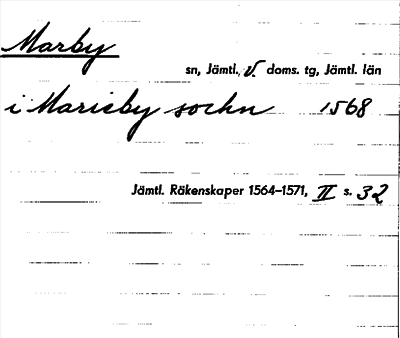 Marby
sn, Jämtl. v. doms. tg, Jämtl. län
i Marieby sochn 1568
Jämtl. Räkenskaper 1564–1571, II s. 32